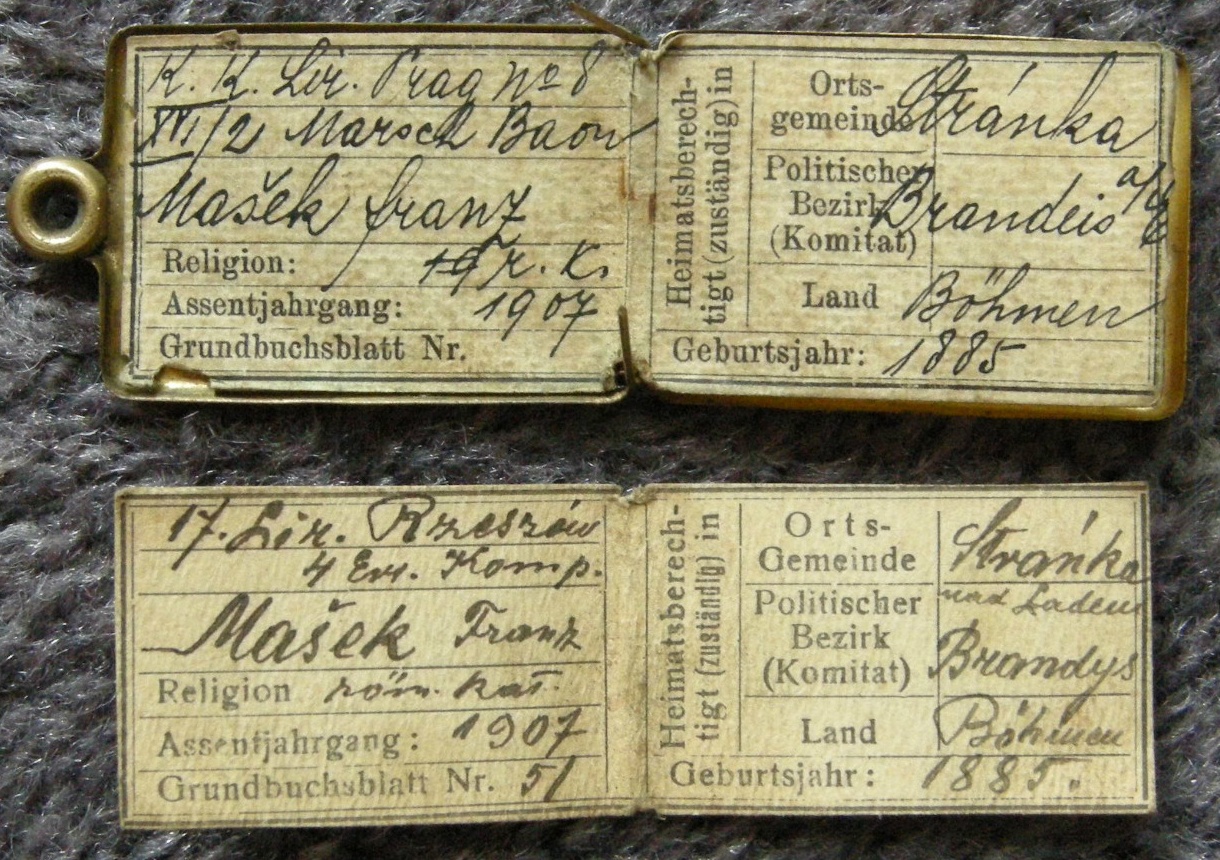 K. K. Lir. Prag No 8
XVI/2 Marsch Baon
Mašek Franz
Religion: r. k.
Assentjahrgang: 1907
Grundbuchsblatt Nr.
Heimatsberech-
tigt (zuständig) in
Orts-
gemeinde Stránka
Politischer
Bezirk Brandeis a/E
(Komitat)
Land Böhmen
Geburtsjahr: 1885
17. Lir. Rzeszów
4 Ers. Komp.
Mašek Franz
Religion röm. kat.
Assentjahrgang: 1907
Grundbuchsblatt Nr. 51
Heimatsberech-
tigt (zuständig) in
Orts-
Gemeinde Stránka
Politischer
Bezirk Brandys
(Komitat)
Land Böhmen
Geburtsjahr: 1885.